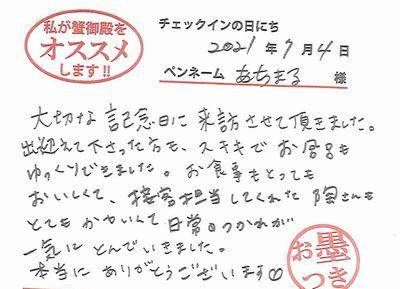 私が蟹御殿を
オススメ
します!!
チェックインの日にち
2021年7月4日
ペンネーム あちまる 様
大切な記念日に来訪させて頂きました。
出迎えて下さった方も、ステキでお風呂も
ゆっくりできました。お食事もとっても
おいしくて、接客担当してくれた陶さんも
とてもかわいくて日常のつかれが
一気にとんでいきました。
本当にありがとうございます♡
お墨
つき